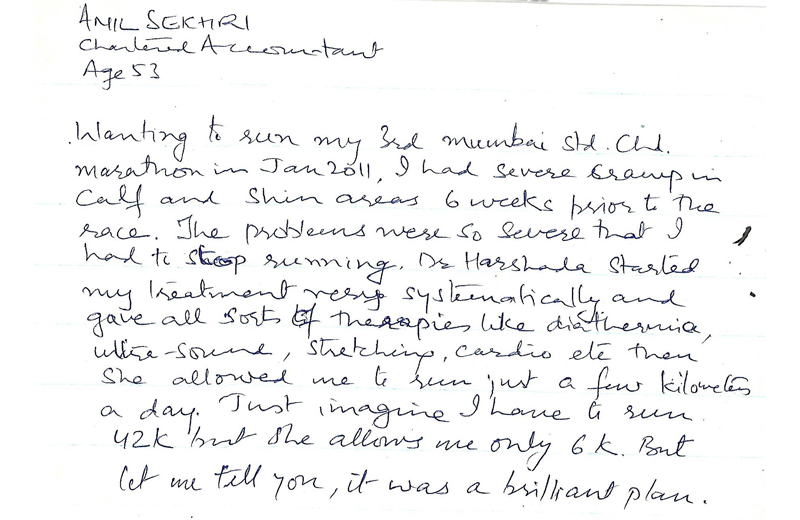 ANIL SEKHRI
Chartered Accountant
Age 53
Wanting to run my 3rd mumbai std. Chd.
marathon in Jan 2011, I had severe cramp in
Calf and Shin areas 6 weeks prior to the
race. The problems were so severe that I
had to stop running. Dr Harshada started
my treatment very systematically and
gave all sorts of therapies like diathermia,
ultra-sound, stretching, cardio etc then
She allowed me to run just a few kilometers
a day. Just imagine I have to run
42K but she allows me only 6 K. But
let me tell you, it was a brilliant plan.